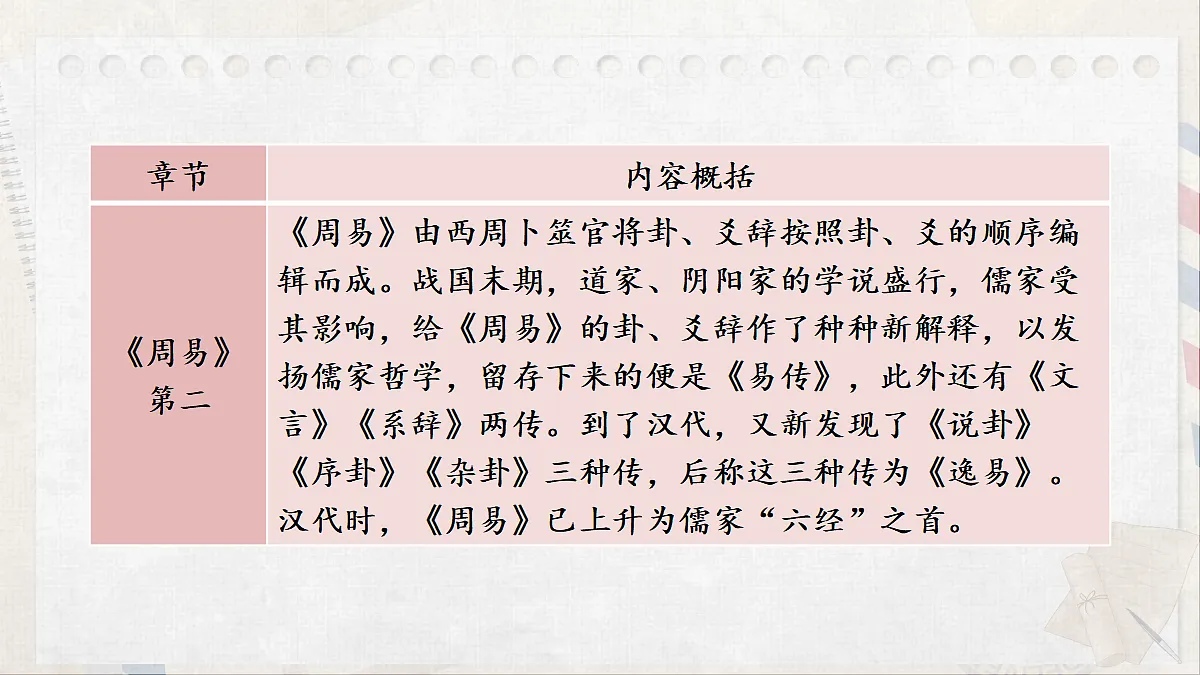 章节
内容概括
《周易》
第二
《周易》由西周卜筮官将卦、爻辞按照卦、爻的顺序编
辑而成。战国末期，道家、阴阳家的学说盛行，儒家受
其影响，给《周易》的卦、爻辞作了种种新解释，以发
扬儒家哲学，留存下来的便是《易传》，此外还有《文
言》《系辞》两传。到了汉代，又新发现了《说卦》
《序卦》《杂卦》三种传，后称这三种传为《逸易》。
汉代时，《周易》已上升为儒家“六经”之首。